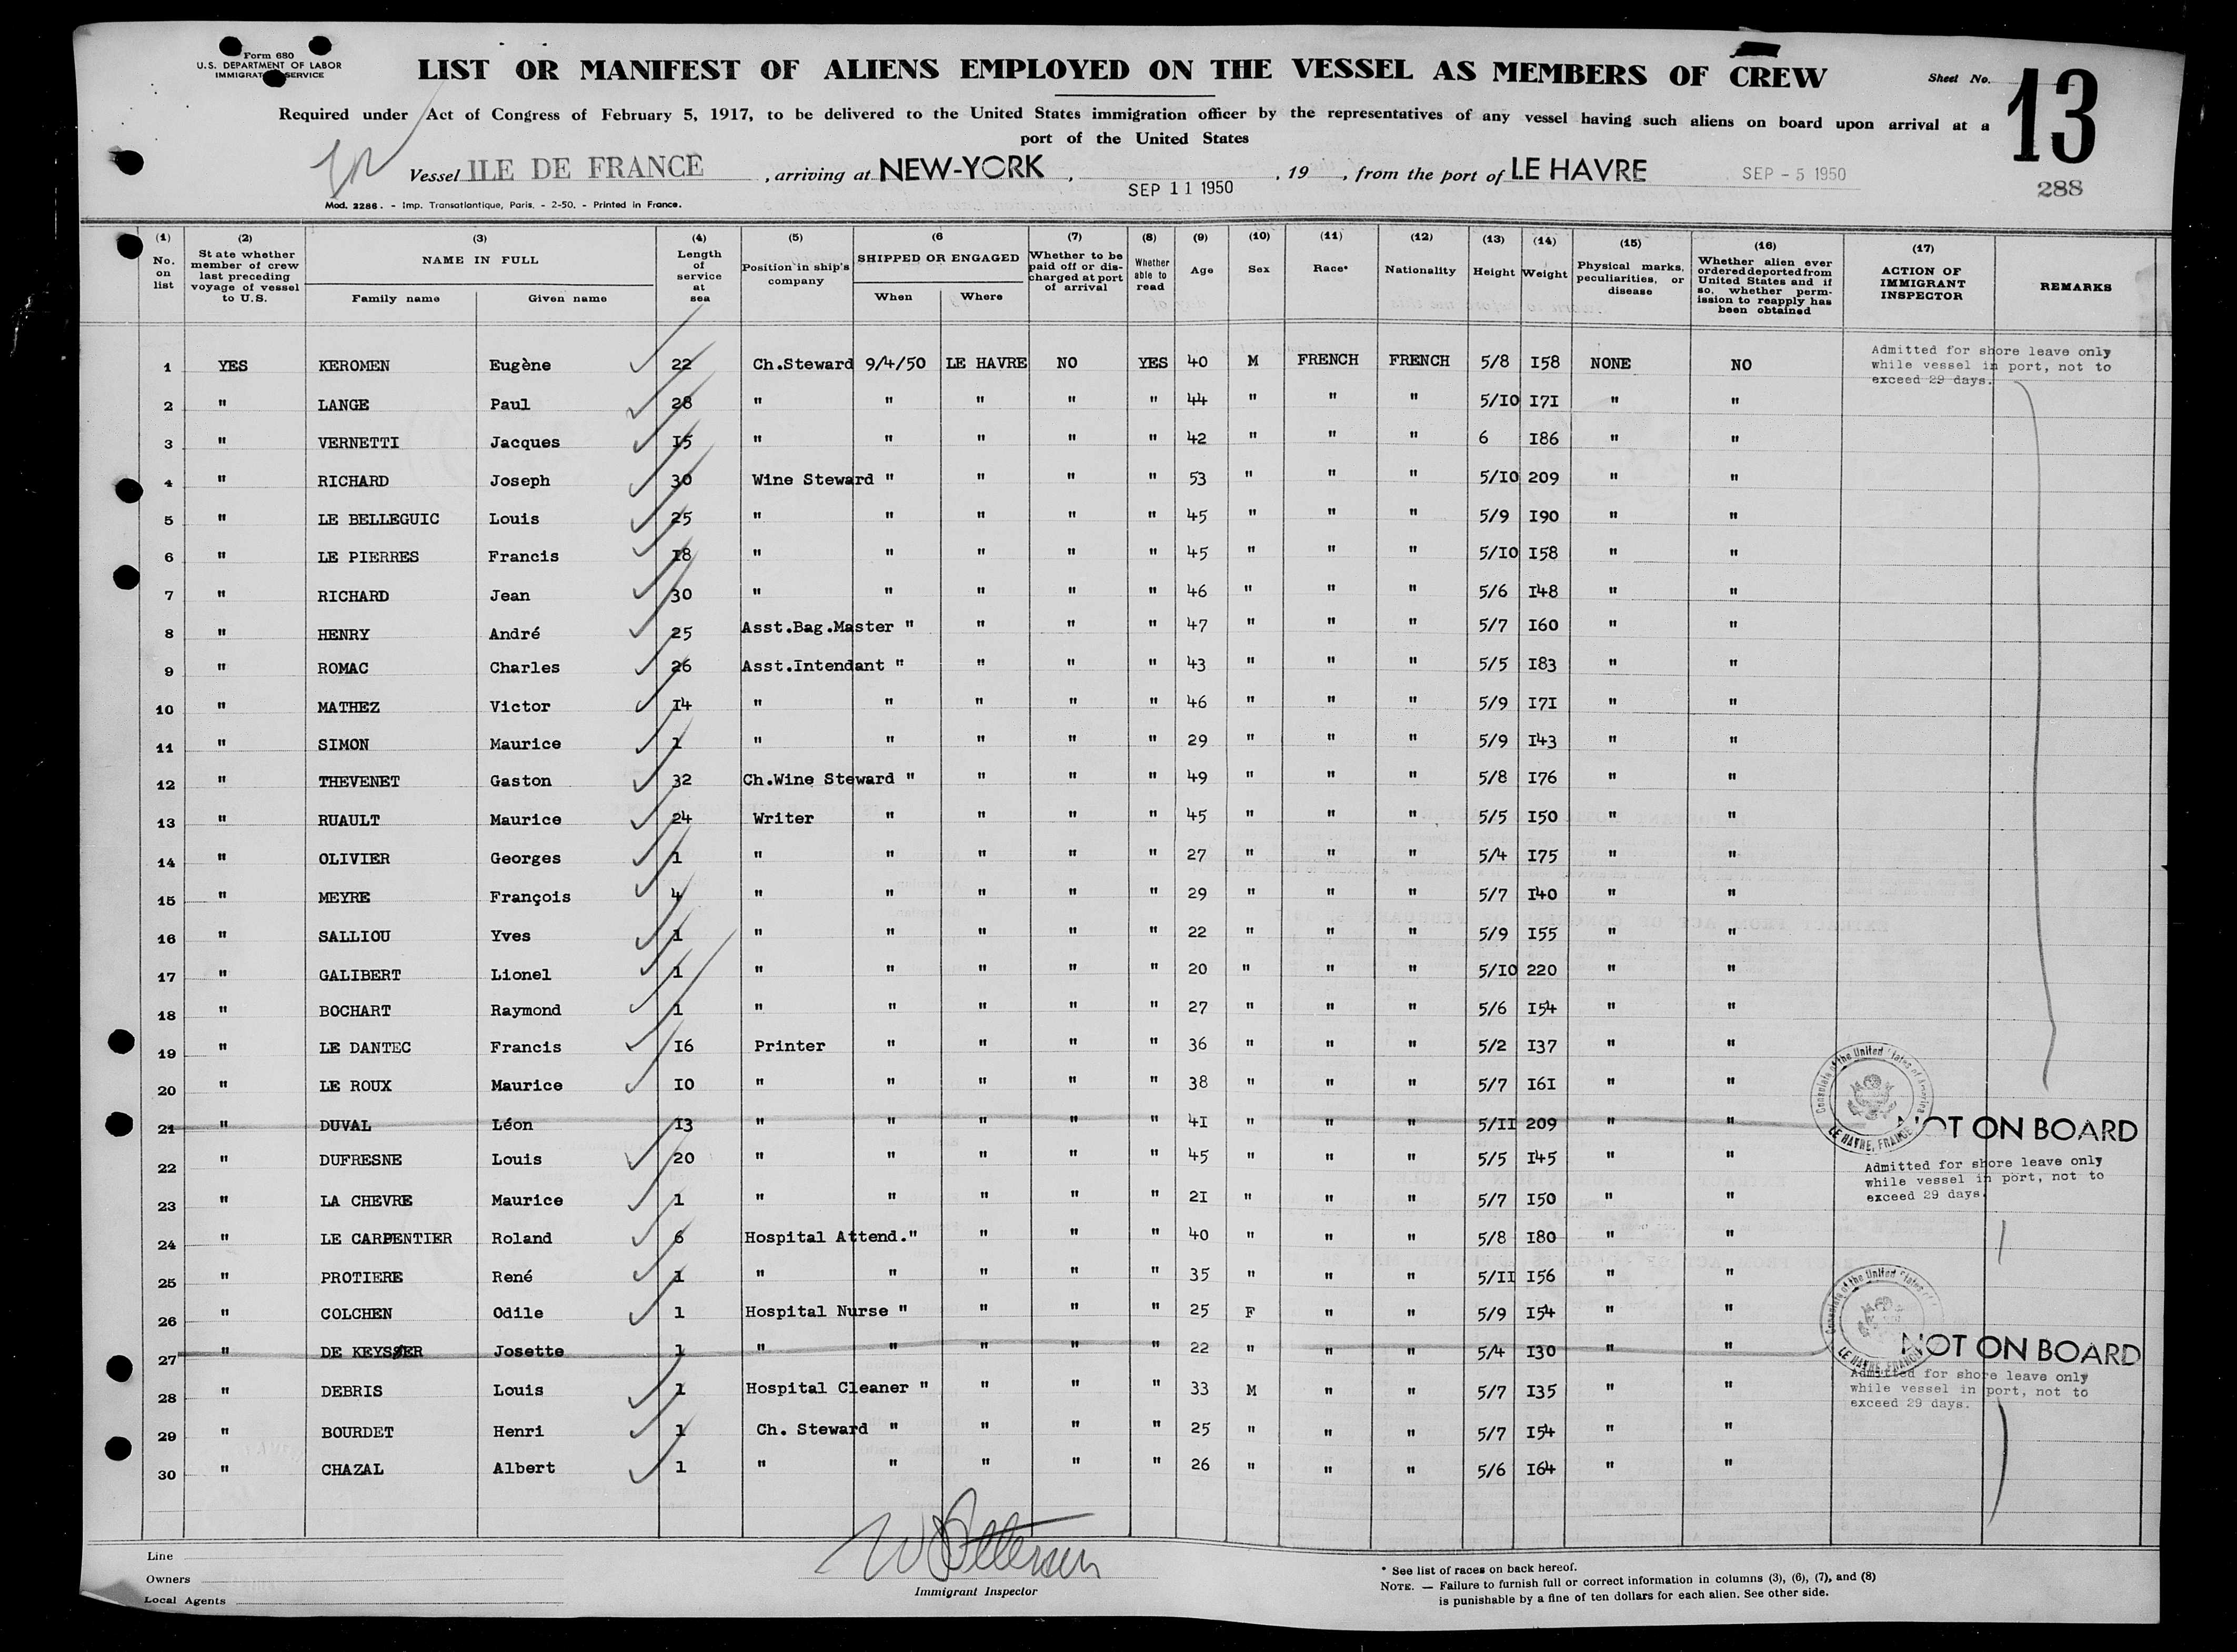 Form 680
U.S. DEPARTMENT OF LABOR
IMMIGRATION SERVICE
LIST OR MANIFEST OF ALIENS EMPLOYED ON THE VESSEL AS MEMBERS OF CREW
Sheet No. 13
Required under Act of Congress of February 5, 1917, to be delivered to the United States immigration officer by the representatives of any vessel having such aliens on board upon arrival at a
port of the United States
Vessel ILE DE FRANCE , arriving at NEW-YORK , SEP 11 1950 , 19 , from the port of LE HAVRE SEP - 5 1950
288
Mod. 2286. - Imp. Transatlantique, Paris. - 2-50. - Printed in France.
(1) No. on list (2) State whether member of crew last preceding voyage of vessel to U.S. (3) NAME IN FULL Family name Given name (4) Length of service at sea (5) Position in ship's company (6 SHIPPED OR ENGAGED When Where (7) Whether to be paid off or discharged at port of arrival (8) Whether able to read (9) Age (10) Sex (11) Race* (12) Nationality (13) Height (14) Weight (15) Physical marks, peculiarities, or disease (16) Whether alien ever ordered deported from United States and if so, whether permission to reapply has been obtained (17) ACTION OF IMMIGRANT INSPECTOR REMARKS
1 YES KEROMEN Eugène 22 Ch.Steward 9/4/50 LE HAVRE NO YES 40 M FRENCH FRENCH 5/8 I58 NONE NO
Admitted for shore leave only
while vessel in port, not to
exceed 29 days.
2 " LANGE Paul 28 " " " " " 44 " " " 5/IO I7I " "
3 " VERNETTI Jacques I5 " " " " " 42 " " " 6 I86 " "
4 " RICHARD Joseph 30 Wine Steward " " " " 53 " " " 5/IO 209 " "
5 " LE BELLEGUIC Louis 25 " " " " " 45 " " " 5/9 I90 " "
6 " LE PIERRES Francis I8 " " " " " 45 " " " 5/IO I58 " "
7 " RICHARD Jean 30 " " " " " 46 " " " 5/6 I48 " "
8 " HENRY André 25 Asst.Bag.Master " " " " 47 " " " 5/7 I60 " "
9 " ROMAC Charles 26 Asst.Intendant " " " " 43 " " " 5/5 I83 " "
10 " MATHEZ Victor I4 " " " " " 46 " " " 5/9 I7I " "
11 " SIMON Maurice 1 " " " " " 29 " " " 5/9 I43 " "
12 " THEVENET Gaston 32 Ch.Wine Steward " " " " 49 " " " 5/8 I76 " "
13 " RUAULT Maurice 24 Writer " " " " 45 " " " 5/5 I50 " "
14 " OLIVIER Georges 1 " " " " " 27 " " " 5/4 I75 " "
15 " MEYRE François 4 " " " " " 29 " " " 5/7 I40 " "
16 " SALLIOU Yves 1 " " " " " 22 " " " 5/9 I55 " "
17 " GALIBERT Lionel 1 " " " " " 20 " " " 5/IO 220 " "
18 " BOCHART Raymond 1 " " " " " 27 " " " 5/6 I54 " "
19 " LE DANTEC Francis I6 Printer " " " " 36 " " " 5/2 I37 " "
20 " LE ROUX Maurice IO " " " " " 38 " " " 5/7 I6I " "
Consulate of the United States of America
LE HAVRE, FRANCE
21 " DUVAL Léon I3 " " " " " 4I " " " 5/II 209 " " NOT ON BOARD
22 " DUFRESNE Louis 20 " " " " " 45 " " " 5/5 I45 " "
Admitted for shore leave only
while vessel in port, not to
exceed 29 days.
23 " LA CHEVRE Maurice 1 " " " " " 2I " " " 5/7 I50 " "
24 " LE CARPENTIER Roland 6 Hospital Attend." " " " 40 " " " 5/8 I80 " "
25 " PROTIERE René 1 " " " " " 35 " " " 5/II I56 " "
26 " COLCHEN Odile 1 Hospital Nurse " " " " 25 F " " 5/9 I54 " "
Consulate of the United States of
LE HAVRE, FRANCE
27 " DE KEYSER Josette 1 " " " " " 22 " " " 5/4 I30 " " NOT ON BOARD
28 " DEBRIS Louis 1 Hospital Cleaner " " " " 33 M " " 5/7 I35 " "
Admitted for shore leave only
while vessel in port, not to
exceed 29 days.
29 " BOURDET Henri 1 Ch. Steward " " " " 25 " " " 5/7 I54 " "
30 " CHAZAL Albert 1 " " " " " 26 " " " 5/6 I64 " "
Line
Owners
Local Agents
Immigrant Inspector
* See list of races on back hereof.
NOTE. — Failure to furnish full or correct information in columns (3), (6), (7), and (8)
is punishable by a fine of ten dollars for each alien. See other side.